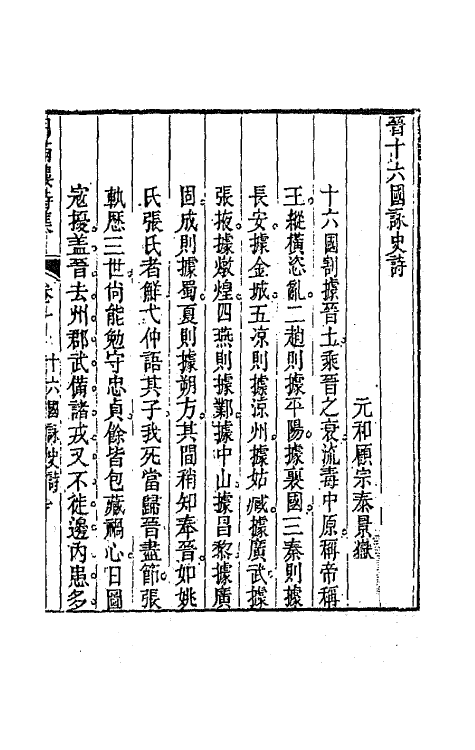 晉十六國詠史詩
元和顧宗泰景嶽
十六國割據晉土乘晉之衰流毒中原稱帝稱
王縱橫恣亂二趙則據平陽據襄國三秦則據
長安據金城五凉則據涼州據姑臧據廣武據
張掖據燉煌四燕則據鄴據中山據昌黎據廣
固成則據蜀夏則據朔方其間稍知奉晉如姚
氏張氏者鮮弋仲語其子我死當歸晉盡節張
軌歷三世尙能勉守忠貞餘皆包藏禍心日圖
寇擾盖晉去州郡武備諸戎又不徙邊內患多
十六國詠史詩